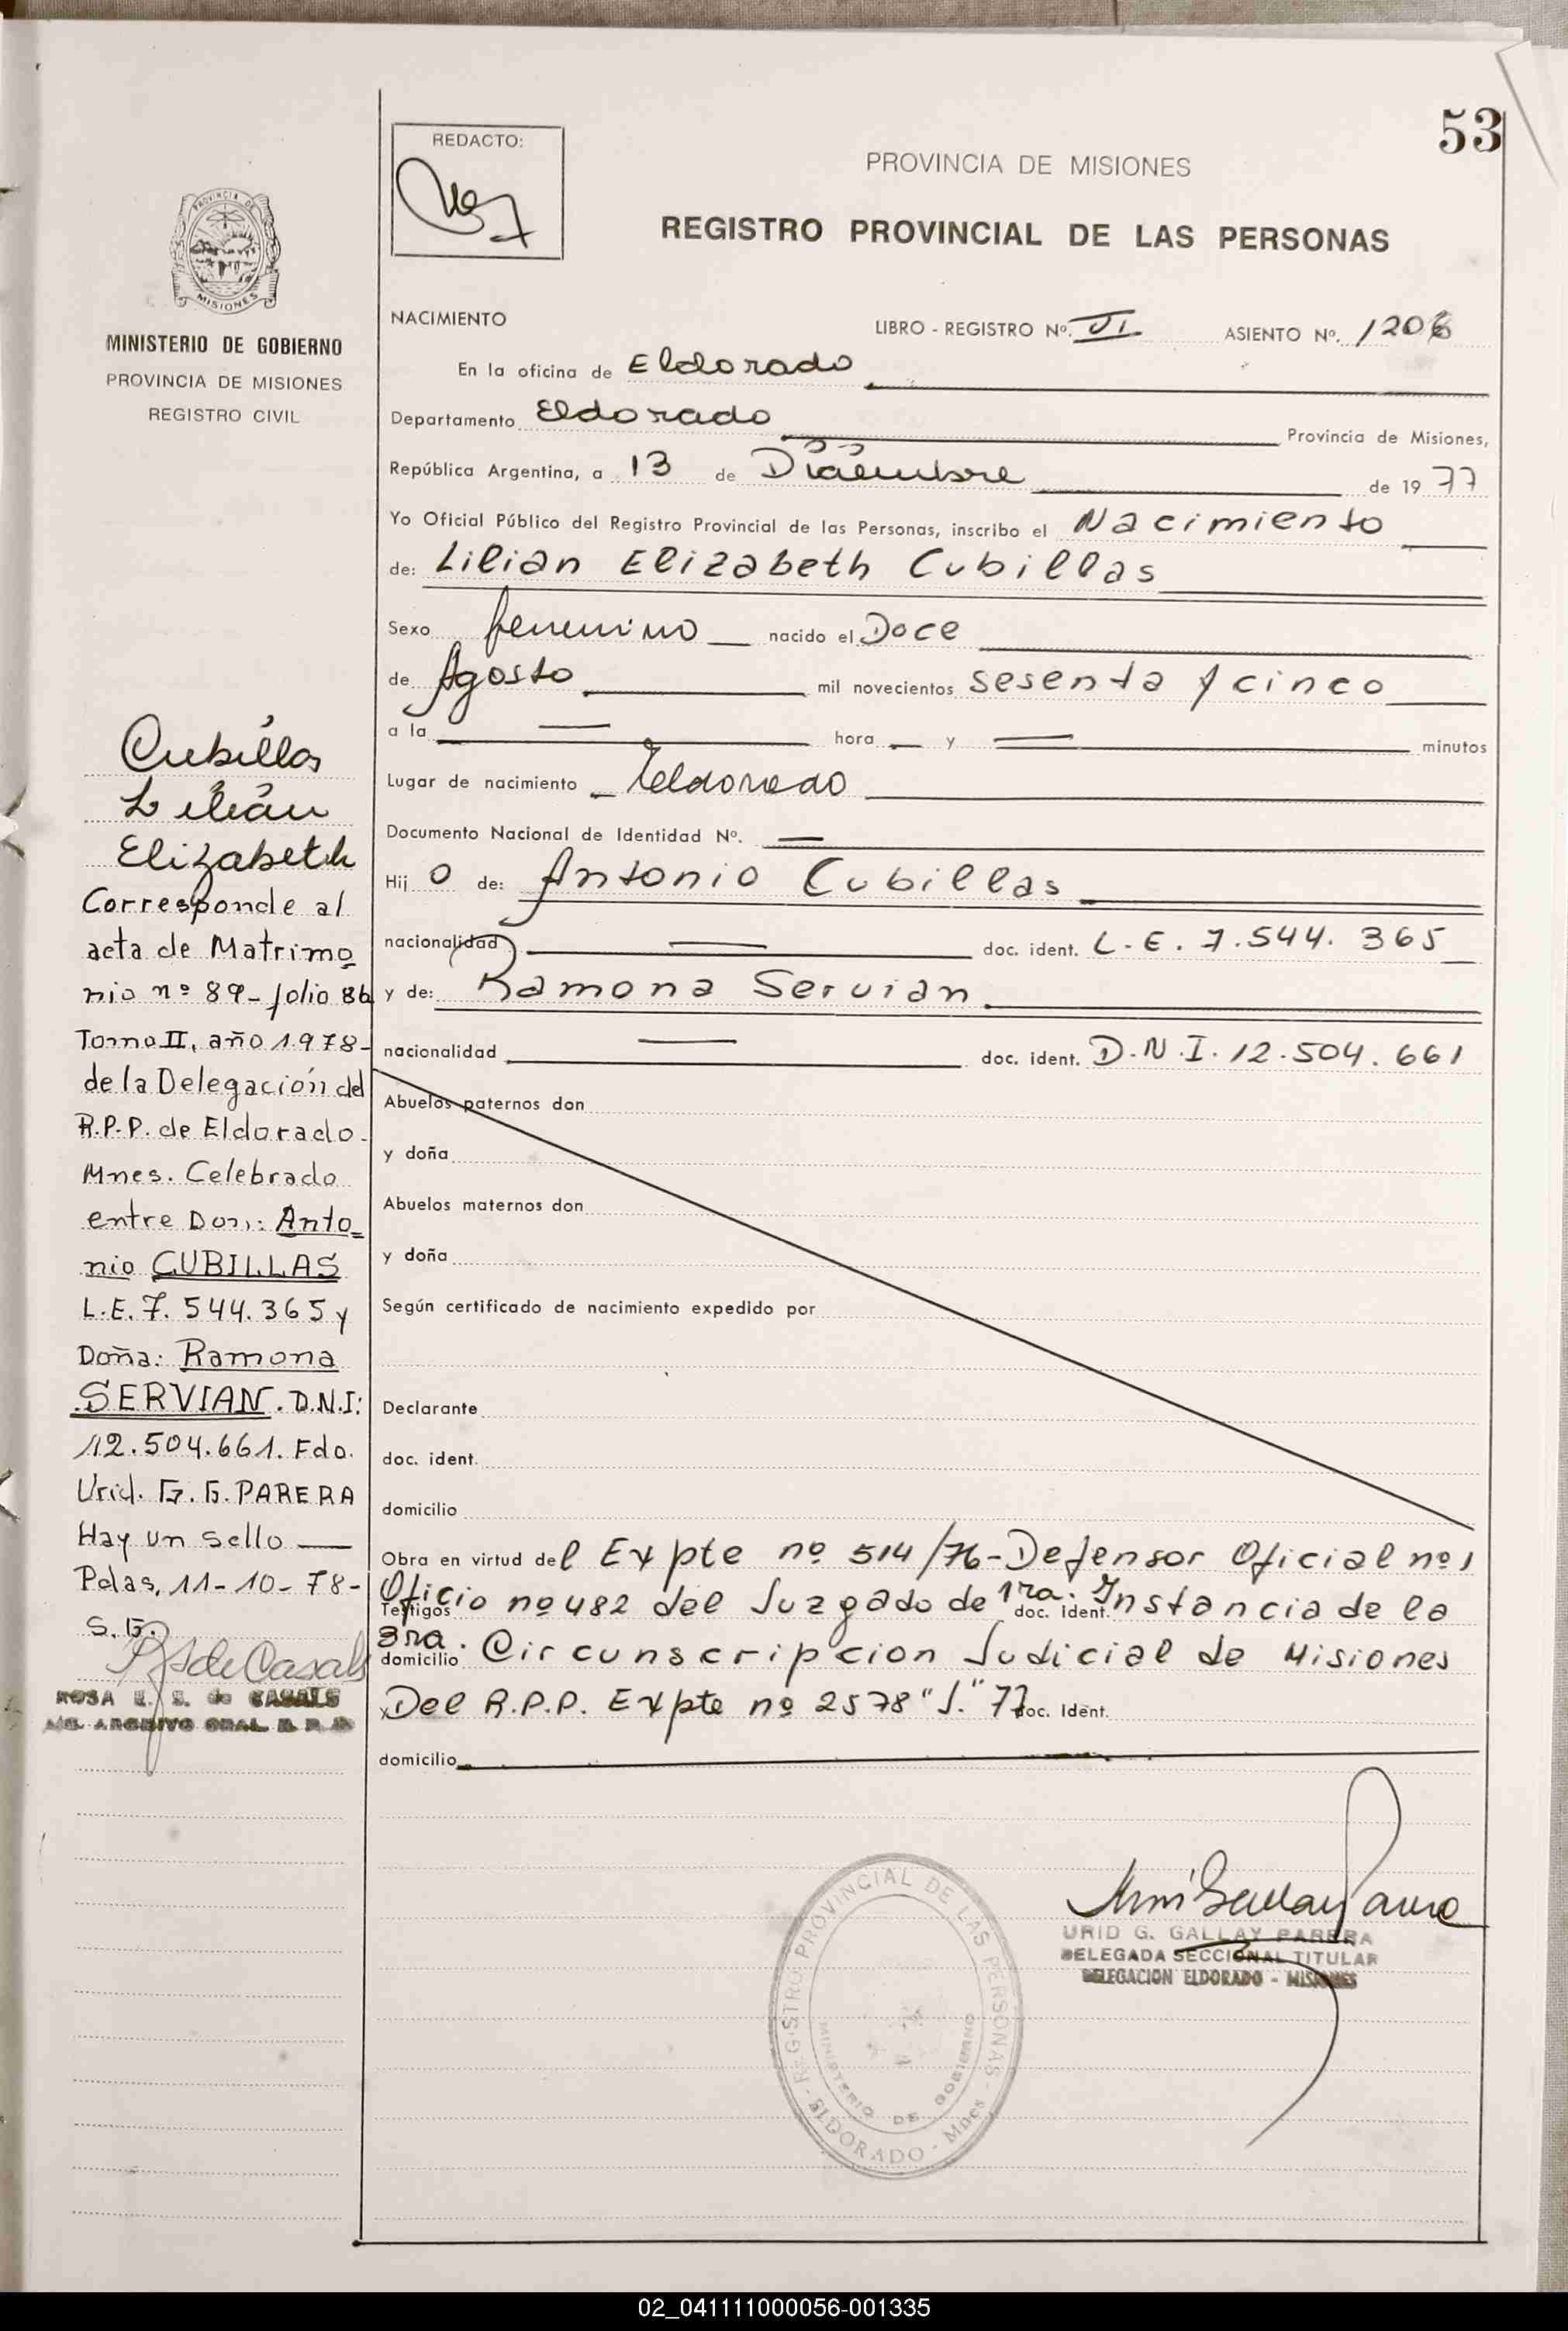 53
REDACTO:
PROVINCIA DE MISIONES
REGISTRO PROVINCIAL DE LAS PERSONAS
PROVINCIA DE
MISIONES
MINISTERIO DE GOBIERNO
PROVINCIA DE MISIONES
REGISTRO CIVIL
NACIMIENTO
LIBRO - REGISTRO Nº. VI ASIENTO Nº. 1206
En la oficina de Eldorado
Departamento Eldorado Provincia de Misiones,
República Argentina, a 13 de Diciembre de 1977
Yo Oficial Público del Registro Provincial de las Personas, inscribo el Nacimiento
de: Lilian Elizabeth Cubillas
Sexo femenino nacido el Doce
de Agosto mil novecientos sesenta y cinco
a la — hora — y — minutos
Lugar de nacimiento Eldorado
Documento Nacional de Identidad Nº. —
Hij o de: Antonio Cubillas
nacionalidad — doc. ident. L.E. 7.544.365
y de: Ramona Servian
nacionalidad — doc. ident. D.N.I. 12.504.661
Abuelos paternos don
y doña
Abuelos maternos don
y doña
Según certificado de nacimiento expedido por
Declarante
doc. ident.
domicilio
Obra en virtud del Expte nº 514/76-Defensor Oficial nº 1
Oficio nº 482 del Juzgado de 1ra. Instancia de la
Testigos doc. ident.
3ra. Circunscripcion Judicial de Misiones
domicilio
Del R.P.P. Expte nº 2578 "J." 77
y doc. Ident.
domicilio
Cubillas
Lilian
Elizabeth
Corresponde al
acta de Matrimo
nio nº 89-folio 86
Tomo II, año 1978-
de la Delegación del
R.P.P. de Eldorado-
Mnes. Celebrado
entre Don: Anto
nio CUBILLAS
L.E. 7.544.365 y
Doña: Ramona
SERVIAN. D.N.I:
12.504.661. Fdo.
Urid. G. G. PARERA
Hay un sello —
Pdas, 11-10-78-
S.G.
ROSA E. S. de CASALS
REGISTRO PROVINCIAL DE LAS PERSONAS
MINISTERIO DE GOBIERNO
ELDORADO - Mnes
URID G. GALLAY PARERA
DELEGADA SECCIONAL TITULAR
DELEGACION ELDORADO - MISIONES
02_041111000056-001335